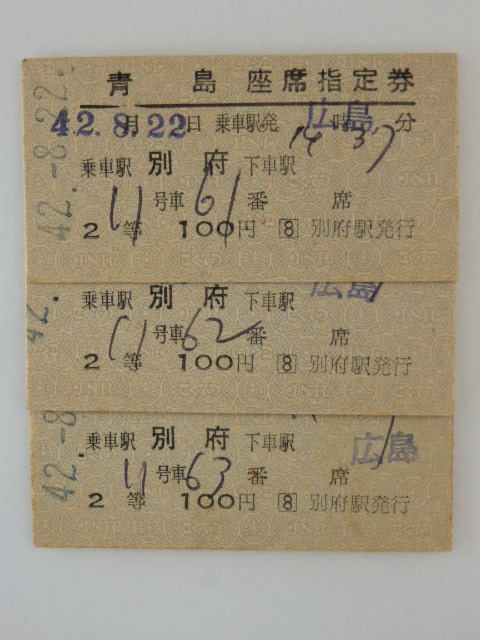 青島座席指定券
42.8.22
月日乗車駅発時分
広島
14 37
乗車駅 別府 下車駅
11号車 61番席
2等 100円 8 別府駅発行
42.-8.22.
乗車駅 別府 下車駅
広島
11号車 62番席
2等 100円 8 別府駅発行
42.
乗車駅 別府 下車駅
広島
11号車 63番席
2等 100円 8 別府駅発行
42.-8